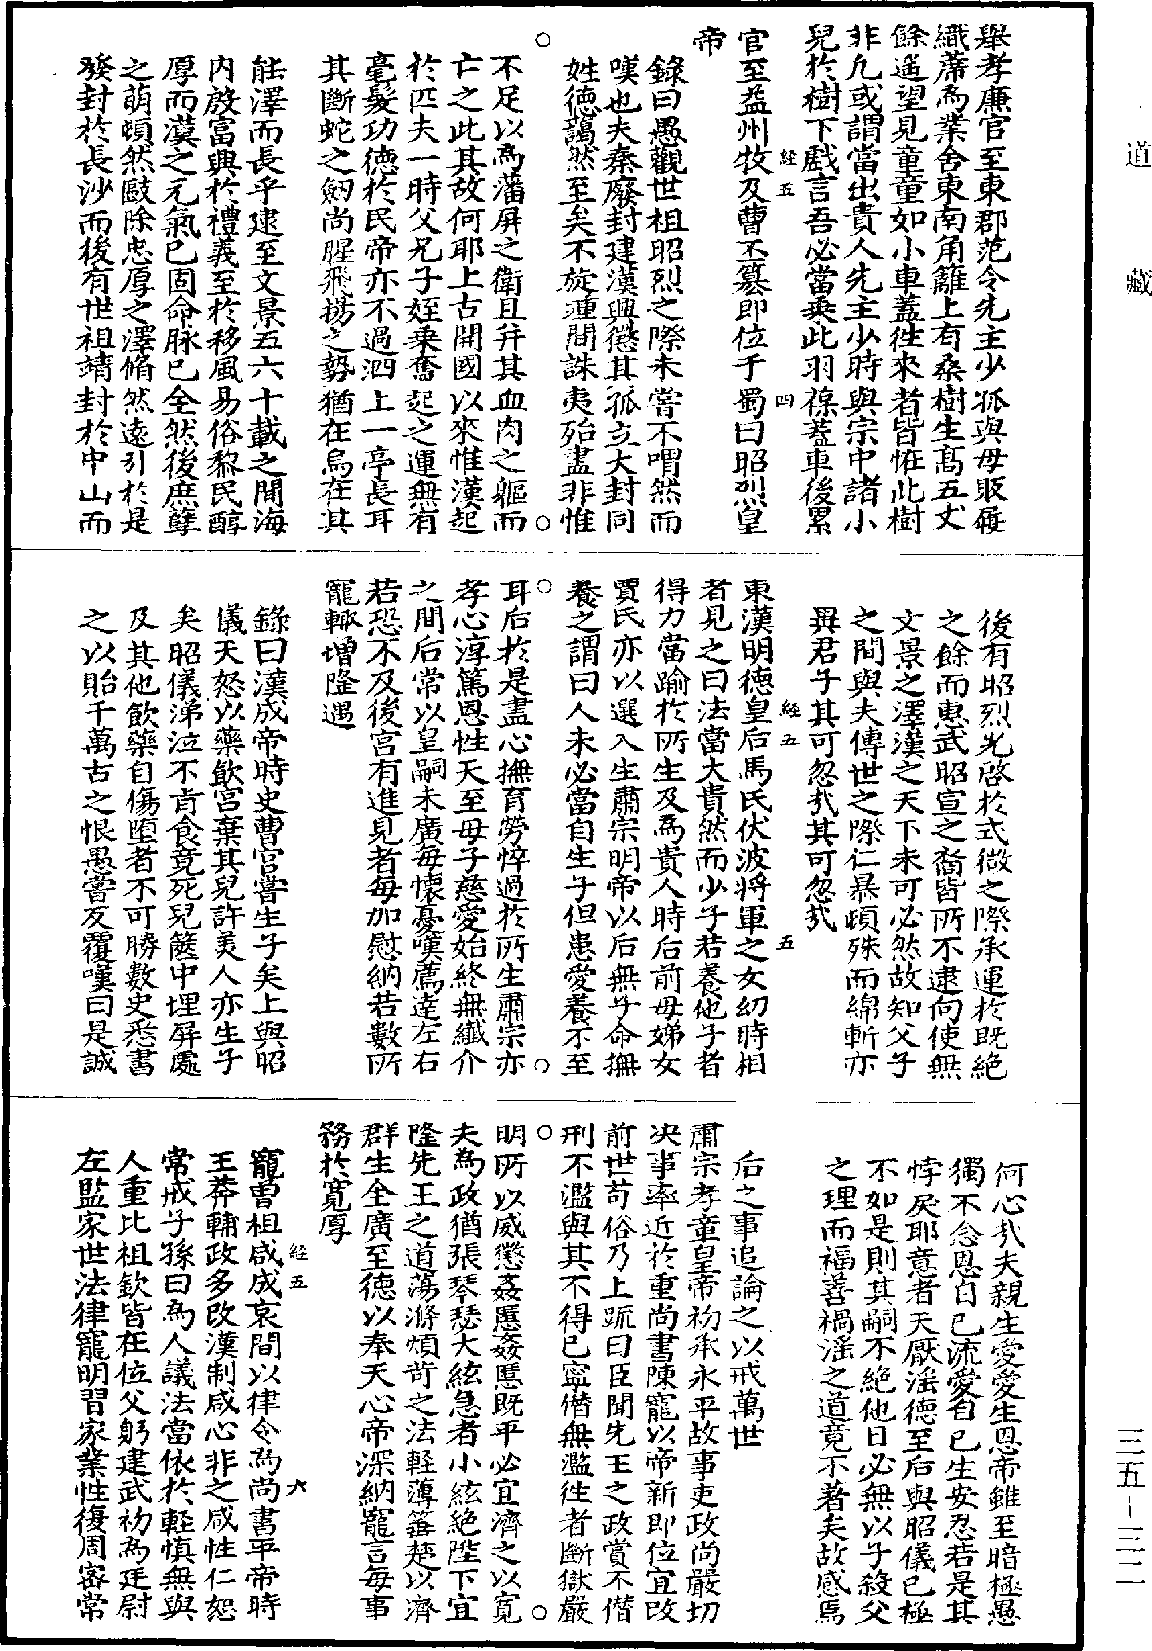 道藏
三五-三二
舉孝廉官至東郡范令先主少孤與母販履
織蓆為業舍東南角籬上有桑樹生高五丈
餘遙望見童童如小車蓋往來者皆恠此樹
非凡或謂當出貴人先主少時與宗中諸小
兒於樹下戲言吾必當乘此羽葆蓋車後累
經五 四
官至益州牧及曹丕篡即位于蜀曰昭烈皇
帝
錄曰愚觀世祖昭烈之際未嘗不喟然而
嘆也夫秦廢封建漢興懲其孤立大封同
姓德藹然至矣不旋踵間誅夷殆盡非惟
不足以為藩屏之衛且并其血肉之軀而
亡之此其故何耶上古開國以來惟漢起
於匹夫一時父兄子姪乗奮起之運無有
毫髮功德於民帝亦不過泗上一亭長耳
其斷蛇之劒尚腥飛揚之勢猶在烏在其
能澤而長乎逮至文景五六十載之間海
內殷富興於禮義至於移風易俗黎民醇
厚而漢之元氣已固命脉已全然後庶孽
之萌頓然敺除忠厚之澤脩然遠引於是
發封於長沙而後有世祖靖封於中山而
後有昭烈光啓於式微之際承運於既絕
之餘而惠武昭宣之裔皆所不逮向使無
文景之澤漢之天下未可必然故知父子
之間與夫傳世之際仁暴頓殊而綿斬亦
異君子其可忽㢤其可忽㢤
經五 五
東漢明德皇后馬氏伏波將軍之女幼時相
者見之曰法當大貴然而少子若養他子者
得力當踰於所生及為貴人時后前母娣女
賈氏亦以選入生肅宗明帝以后無子命撫
養之謂曰人未必當自生子但患愛養不至
耳后於是盡心撫育勞悴過於所生肅宗亦
孝心淳篤恩性天至母子慈愛始終無纖介
之間后常以皇嗣未廣每懷憂嘆薦達左右
若恐不及後宮有進見者每加慰納若數所
寵輙增隆遇
錄曰漢成帝時史曹宮嘗生子矣上與昭
儀天怒以藥飲宮棄其兒許美人亦生子
矣昭儀涕泣不肯食竟死兒篋中埋屏處
及其他飲藥自傷墮者不可勝數史悉書
之以貽千萬古之恨愚嘗反覆嘆曰是誠
何心㢤夫親生愛愛生恩帝雖至暗極愚
獨不念恩自已流愛自已生安忍若是其
悖戾耶意者天厭淫德至后與昭儀已極
不如是則其嗣不絕他日必無以子殺父
之理而福善禍淫之道竟不著矣故感馬
后之事追論之以戒萬世
肅宗孝章皇帝初承永平故事吏政尚嚴切
决事率近於重尚書陳寵以帝新即位宜改
前世苛俗乃上䟽曰臣聞先王之政賞不僭
刑不濫與其不得已寧僭無濫往者斷獄嚴
明所以威懲姦慝姦慝既平必宜濟之以寬
夫為政猶張琴瑟大絃急者小絃絕陛下宜
隆先王之道蕩滌煩苛之法輕薄箠楚以濟
群生全廣至德以奉天心帝深納寵言每事
務於寬厚
經五 六
寵曾祖咸成哀間以律令為尚書平帝時
王莽輔政多改漢制咸心非之咸性仁恕
常戒子孫曰為人議法當依於輕慎無與
人重比祖欽皆在位父躬建武初為廷尉
左監家世法律寵明習家業性復周密常